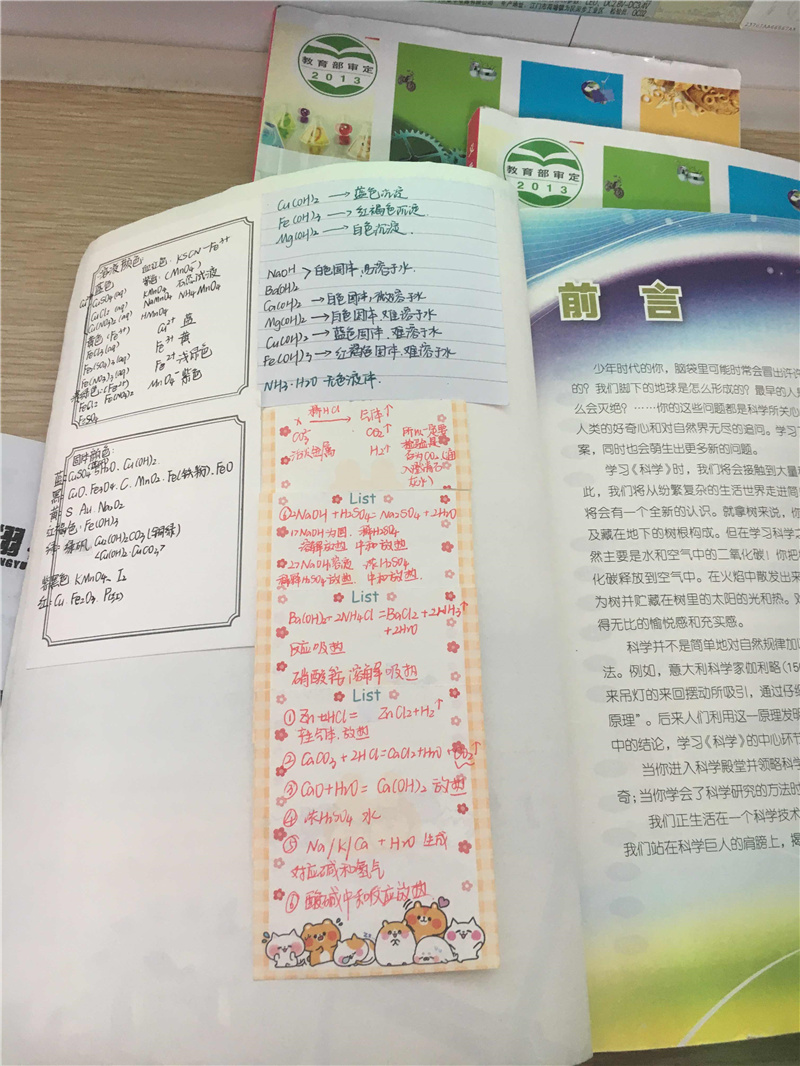 教育部审定
2013
教育部审定
2013
前言
少年时代的你，脑袋里可能时常会冒出许许
的？我们脚下的地球是怎么形成的？最早的人
么会灭绝？……你的这些问题都是科学所关心
人类的好奇心和对自然界无尽的追问。学习了
案，同时也会萌生出更多新的问题。
学习《科学》时，我们将会接触到大量
此，我们将从纷繁复杂的生活世界走进简
将会有一个全新的认识。就拿树来说，你
及藏在地下的树根构成。但在学习科学之
然主要是水和空气中的二氧化碳！你把
化碳释放到空气中。在火焰中散发出来
为树并贮藏在树里的太阳的光和热。对
得无比的愉悦感和充实感。
科学并不是简单地对自然规律加以
法。例如，意大利科学家伽利略（156
来吊灯的来回摆动所吸引，通过仔细
原理”。后来人们利用这一原理发明
中的结论，学习《科学》的中心环节
当你进入科学殿堂并领略科学
奇；当你学会了科学研究的方法时
我们正生活在一个科学技术
我们站在科学巨人的肩膀上，揭
溶液颜色:
血红色: KSCN-Fe³⁺
蓝色
CuSO₄(aq)
紫色: (MnO₄⁻)
CuCl₂(aq)
KMnO₄ 石蕊试液
Cu(NO₃)₂(aq)
NaMnO₄ NH₄MnO₄
黄色(Fe³⁺)
HMnO₄
FeCl₃(aq)
Cu²⁺ 蓝
Fe₂(SO₄)₃(aq)
Fe³⁺ 黄
Fe(NO₃)₃(aq)
Fe²⁺ 浅绿色
浅绿色:(Fe²⁺)
MnO₄⁻ 紫色
FeCl₂ Fe(NO₃)₂
FeSO₄
固体颜色:
蓝: CuSO₄·5H₂O. Cu(OH)₂
黑: CuO. Fe₃O₄. C. MnO₂. Fe(铁粉). FeO
黄: S Au. Na₂O₂
红褐色: Fe(OH)₃
绿: 绿矾. Cu₂(OH)₂CO₃(铜绿)
<Cu(OH)₂·CuCO₃>
紫黑色 KMnO₄、I₂
红: Cu. Fe₂O₃. P(红)
Cu(OH)₂ → 蓝色沉淀
Fe(OH)₃ → 红褐色沉淀.
Mg(OH)₂ → 白色沉淀.
NaOH > 白色固体,易溶于水
Ba(OH)₂
Ca(OH)₂ → 白色固体,微溶于水
Mg(OH)₂ → 白色固体.难溶于水
Cu(OH)₂ → 蓝色固体.难溶于水
Fe(OH)₃ → 红褐色固体.难溶于水
NH₃·H₂O 无色液体.
x 稀HCl → 气体↑
CO₃²⁻ CO₂↑
活泼金属 H₂↑
List
2NaOH+H₂SO₄=Na₂SO₄+2H₂O
1>NaOH为固. 稀H₂SO₄
溶解放热 中和放热
2>NaOH溶液 浓H₂SO₄
稀释H₂SO₄放热. 中和放热.
List
Ba(OH)₂+2NH₄Cl=BaCl₂+2NH₃↑
+2H₂O
反应吸热
硝酸铵溶解吸热
List
①Zn+2HCl= ZnCl₂+H₂↑
放热
②CaCO₃+2HCl=CaCl₂+H₂O+CO₂↑
③CaO+H₂O=Ca(OH)₂ 放热
④浓H₂SO₄ 水
⑤Na/K/Ca+H₂O生成
对应碱和氢气
⑥酸碱中和反应放热